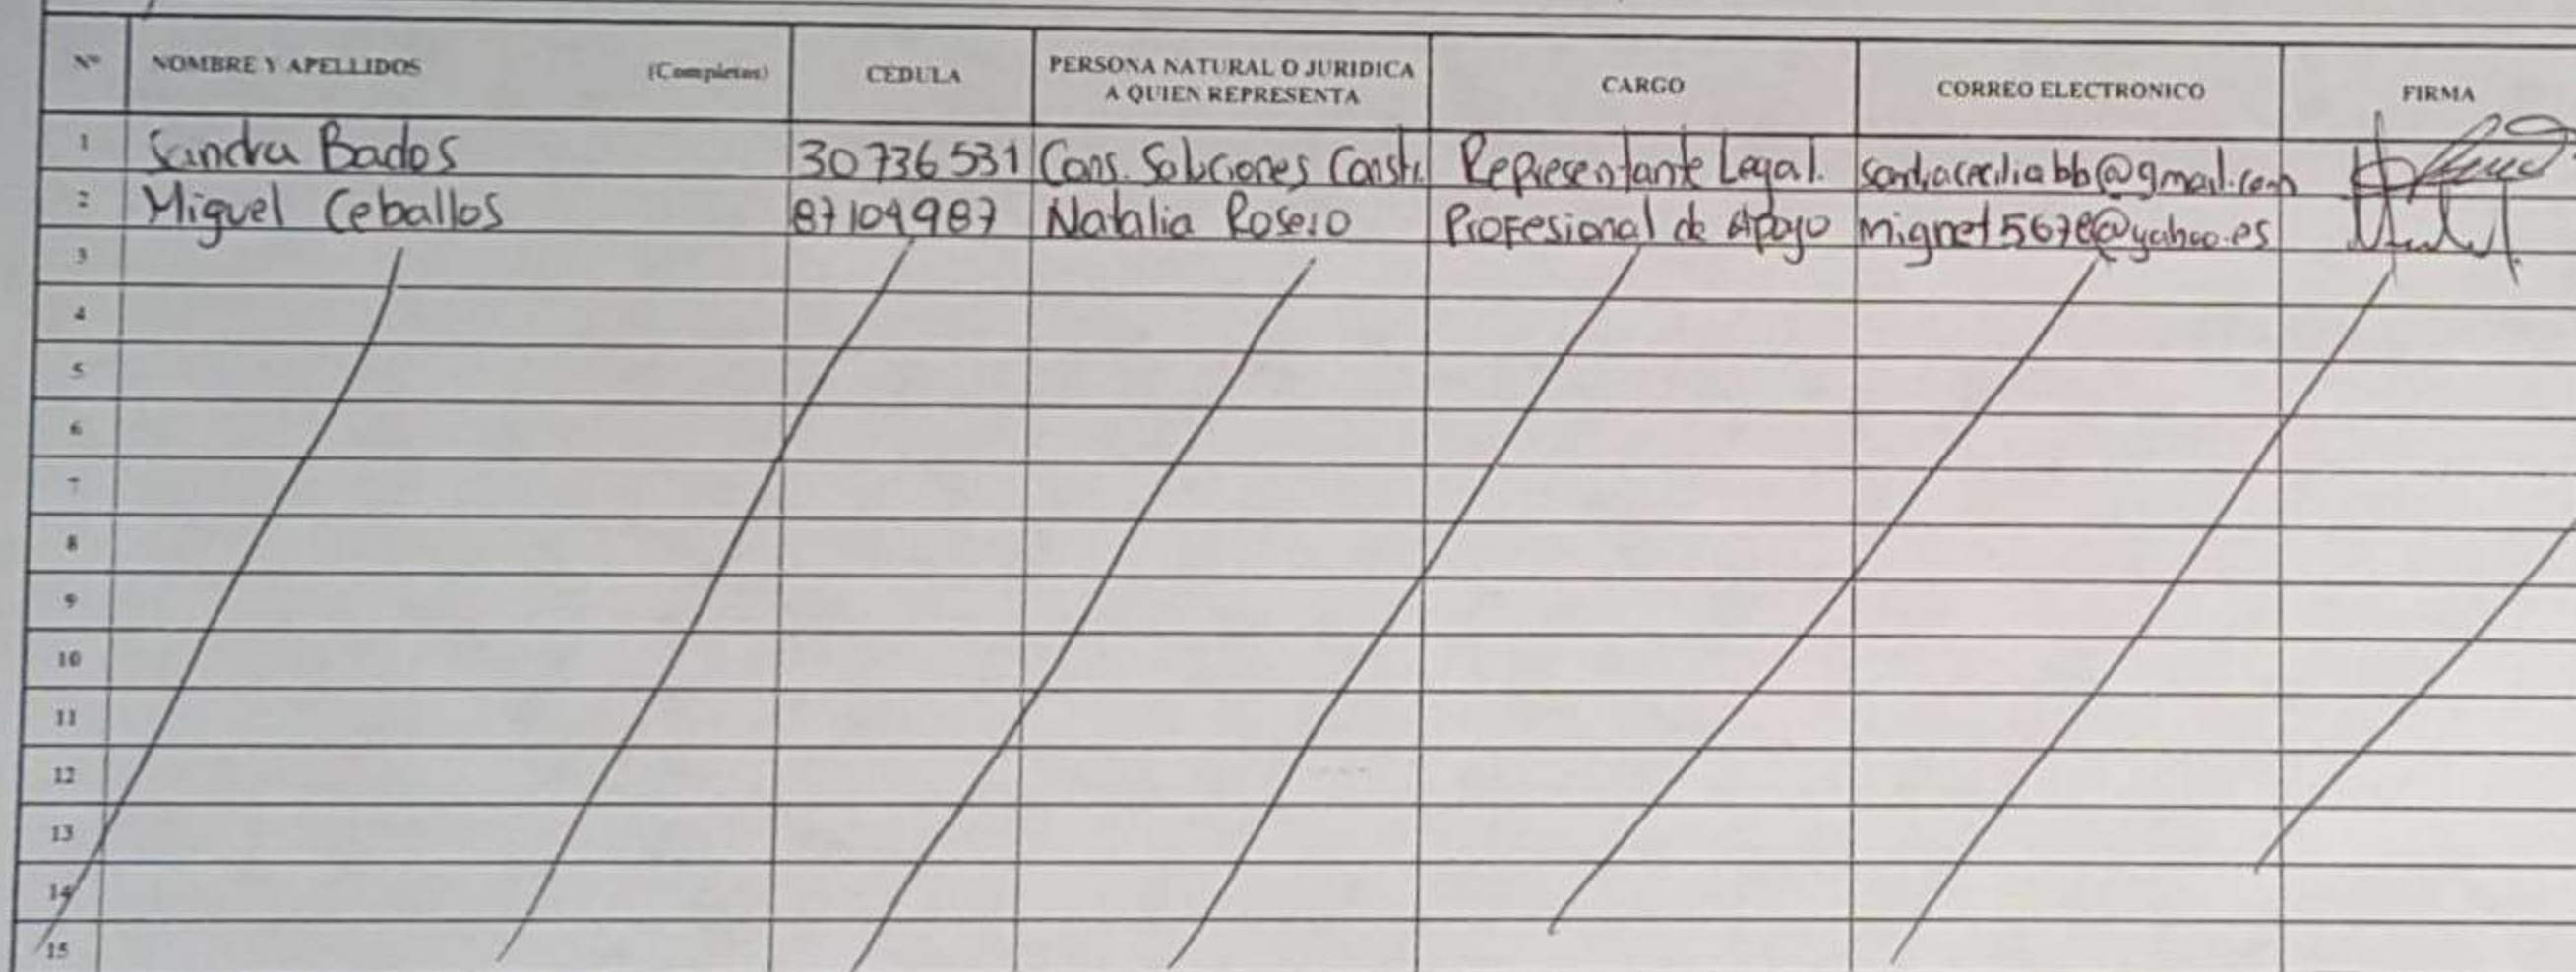 Nº NOMBRE Y APELLIDOS (Completos) CEDULA PERSONA NATURAL O JURIDICA A QUIEN REPRESENTA CARGO CORREO ELECTRONICO FIRMA
1 Sandra Bados 30736531 Cons. Soluciones Constr. Representante Legal. sandraceciliabb@gmail.com
2 Miguel Ceballos 87104987 Natalia Rosero Profesional de Apoyo
3
4
5
6
7
8
9
10
11
12
13
14
15